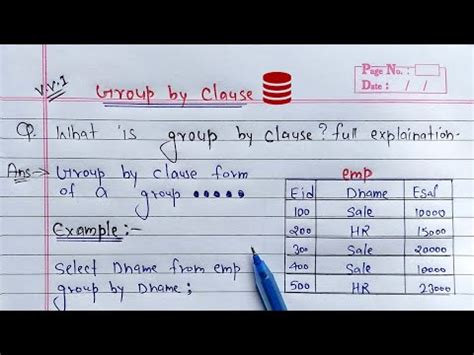 Page No.:
Date: / /
V.V.I
Group by Clause
Q. What is group by clause? full explaination.
Ans → Group by clause form
of a group •••••
Example:-
Select Dname from emp
group by Dname;
emp
Eid Dname Esal
100 Sale 10000
200 HR 15000
300 Sale 20000
400 Sale 10000
500 HR 23000